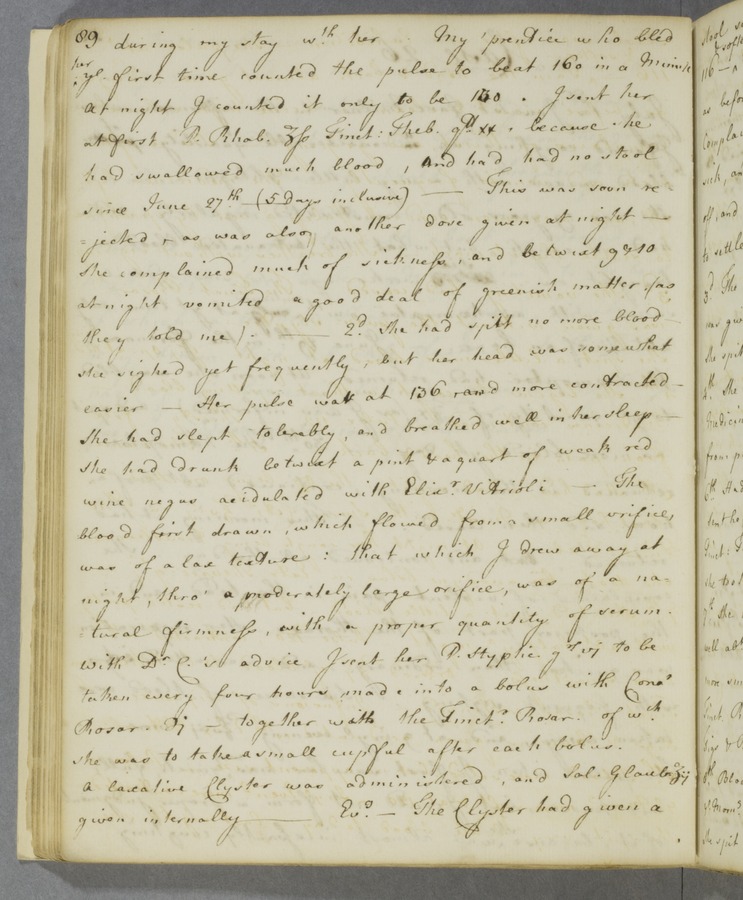 89 during my stay wth her. My 'prentice who bled
her ye first time counted the pulse to beat 160 in a Minute
at night I counted it only to be 130. I sent her
at first P. Rhab. ʒſs Tinct: Theb. gtt xx. because he
had swallowed much blood, and had had no stool
since June 27th (5 Days inclusive) — This was soon re-
=jected, as was also another dose given at night —
she complained much of sickness, and betwixt 9 & 10
at night vomited a good deal of greenish matter (as
they told me). — 2d. she had spitt no more blood
she sighed yet frequently, but her head was somewhat
easier — Her pulse was at 136 and more contracted —
She had slept tolerably, and breathed well in her sleep —
she had drunk betwixt a pint & a quart of weak red
wine negus acidulated with Elixr. Vitrioli — The
blood first drawn, which flowed from a small orifice,
was of a lax texture: that which I drew away at
night, thro' a moderately large orifice, was of a na-
tural firmness, with a proper quantity of serum.
with Dr C.'s advice I sent her P. Styptic. gr vj to be
taken every four hours made into a bolus with Cons.
Rosar. ℈j — together with the Tinct. Rosar. of wch.
she was to take a small cupful after each bolus.
A laxative Clyster was administered, and Sal. Glaub. ʒij
given internally — Ev. — The Clyster had given a